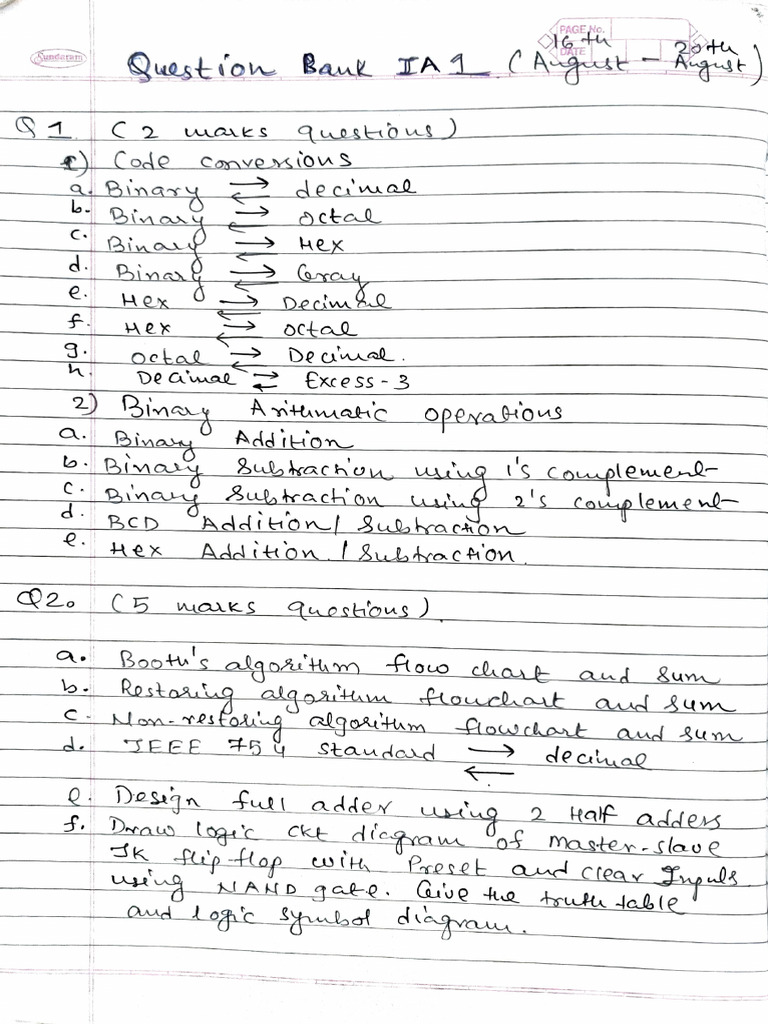 Sundaram
PAGE No.
DATE
Question Bank IA 1 (16th August - 20th August)
Q 1 (2 marks questions)
1) Code conversions
a. Binary ⇄ decimal
b. Binary ⇄ octal
c. Binary ⇄ Hex
d. Binary ⇄ Gray
e. Hex ⇄ Decimal
f. Hex ⇄ octal
g. octal ⇄ Decimal.
h. Decimal ⇄ Excess-3
2) Binary Arithmatic operations
a. Binary Addition
b. Binary Subtraction using 1's complement
c. Binary Subtraction using 2's complement
d. BCD Addition / Subtraction
e. Hex Addition / Subtraction.
Q2. (5 marks questions).
a. Booth's algorithm flow chart and sum
b. Restoring algorithm flowchart and sum
c. Non-restoring algorithm flowchart and sum
d. IEEE 754 standard ⇄ decimal
e. Design full adder using 2 Half adders
f. Draw logic ckt diagram of Master-slave
JK flip-flop with Preset and clear Inputs
using NAND gate. Give the truth table
and logic symbol diagram.